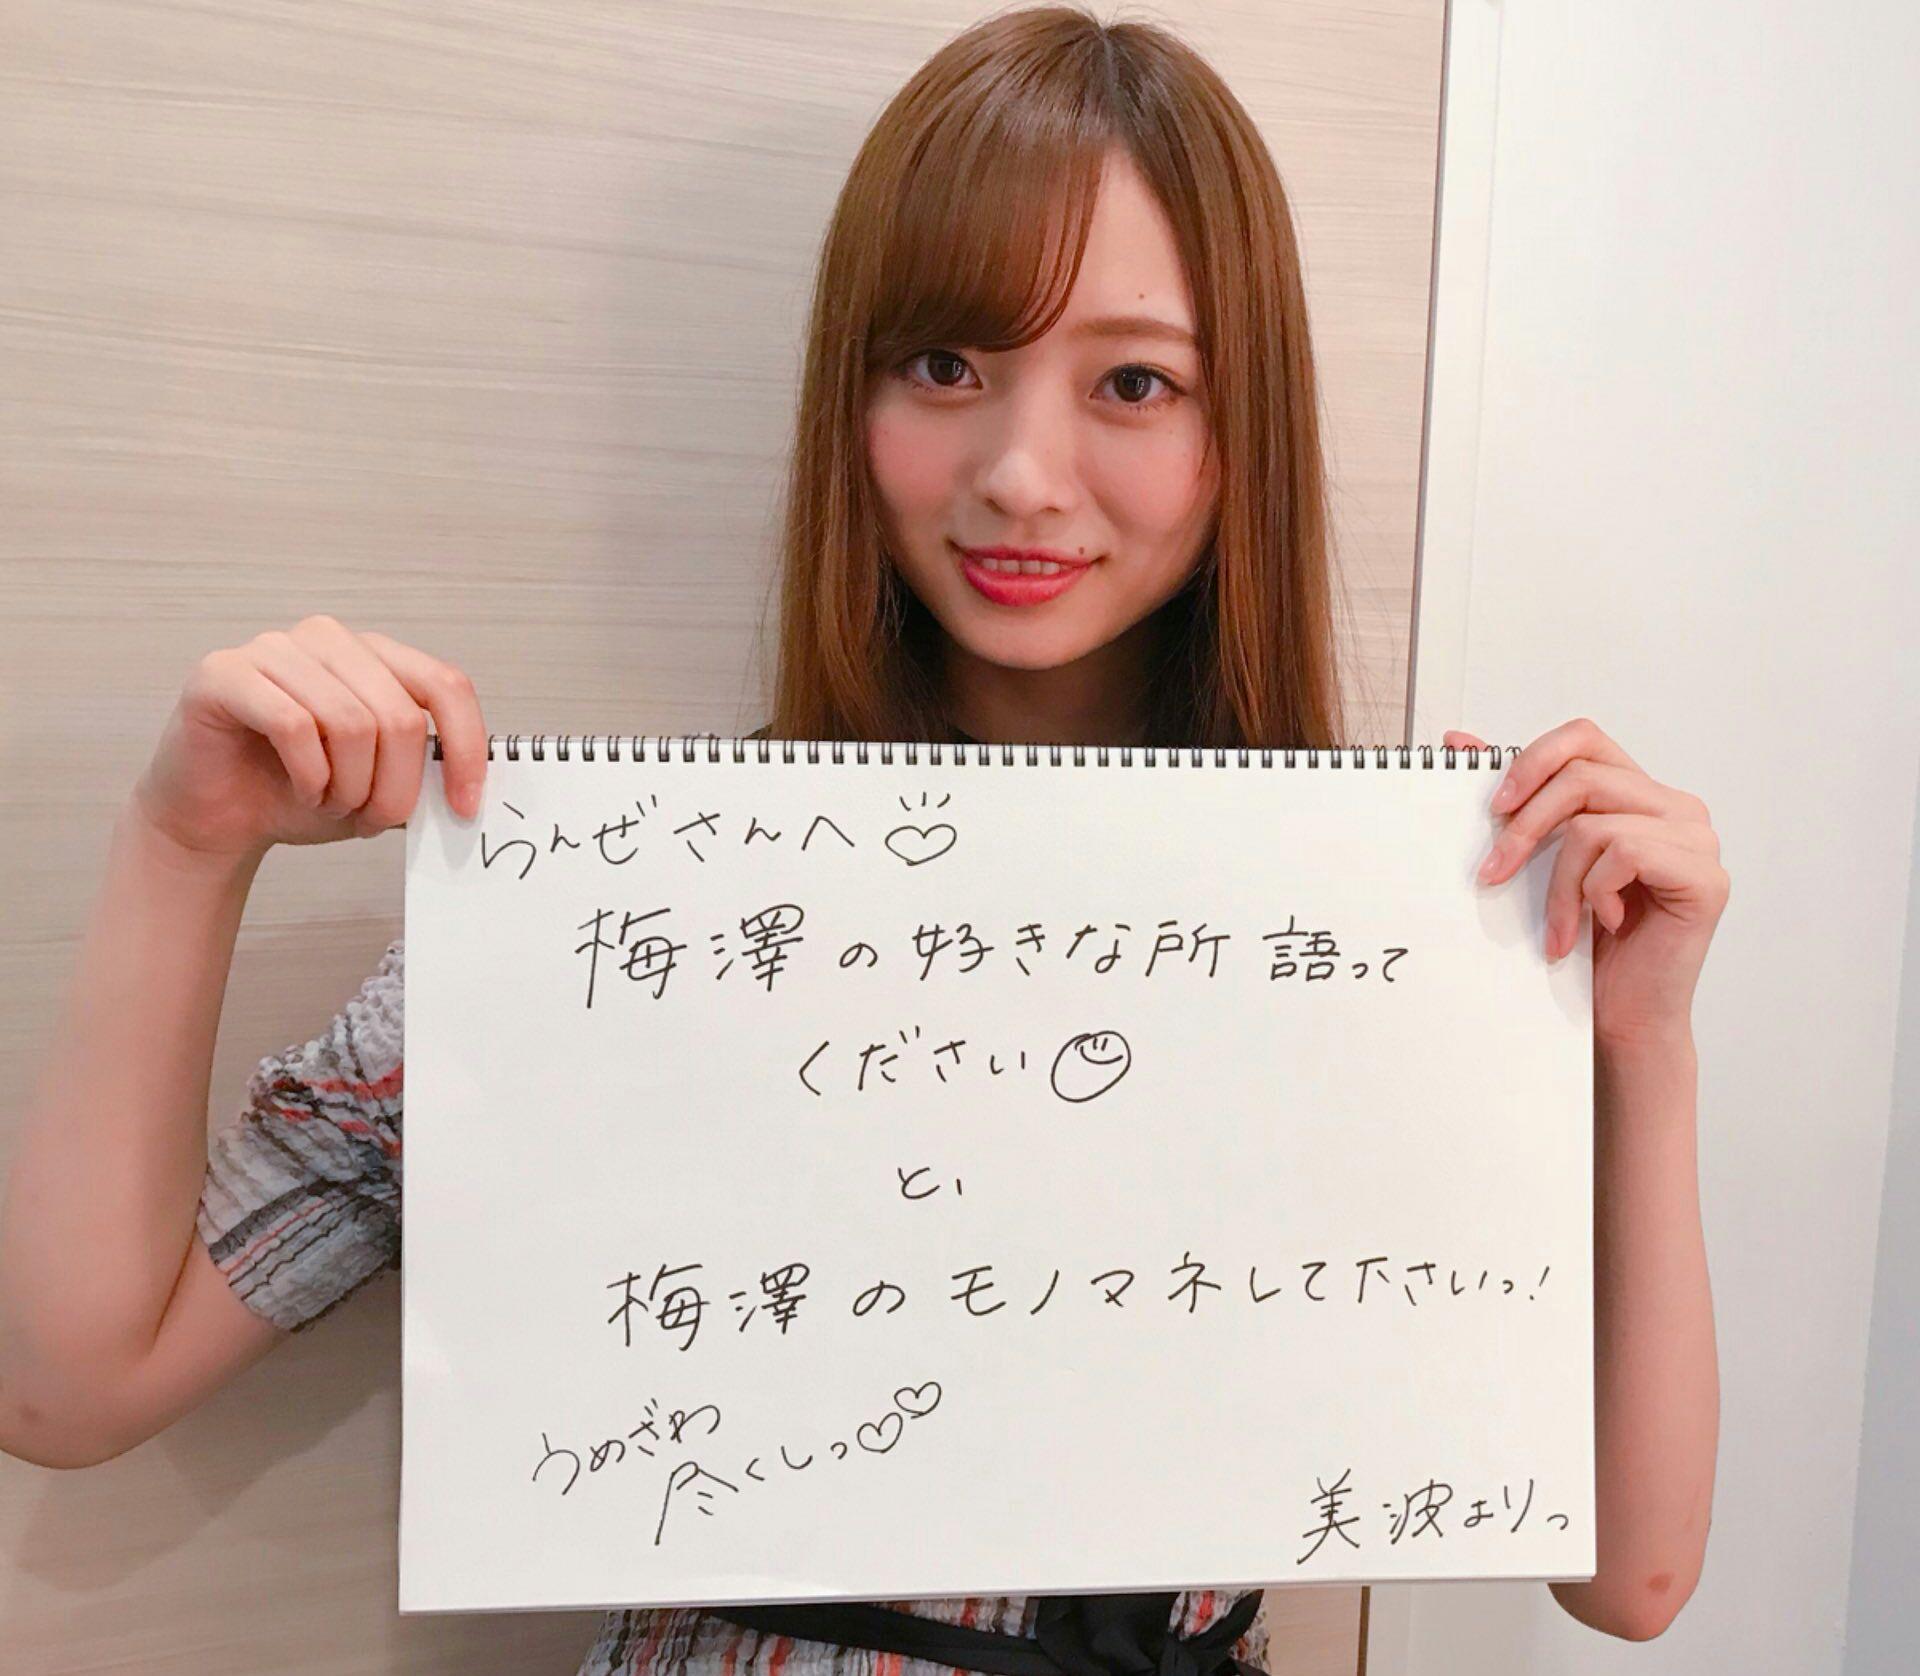 らんぜさんへ♡
梅澤の好きな所語って
ください
と、
梅澤のモノマネして下さいっ！
うめざわ
尽くしっ♡♡
美波よりっ